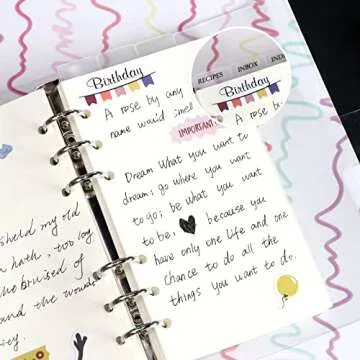 Birthday
A rose by any
name would smell
IMPORTANT
Dream What you want to
dream; go where you want
to go; be what you want
to be, because you
have only one life and one
chance to do all the
things you want to do.
RECIPES INBOX
Birthday
A rose by
held my old
hath, too long
bruised of
and the wounds